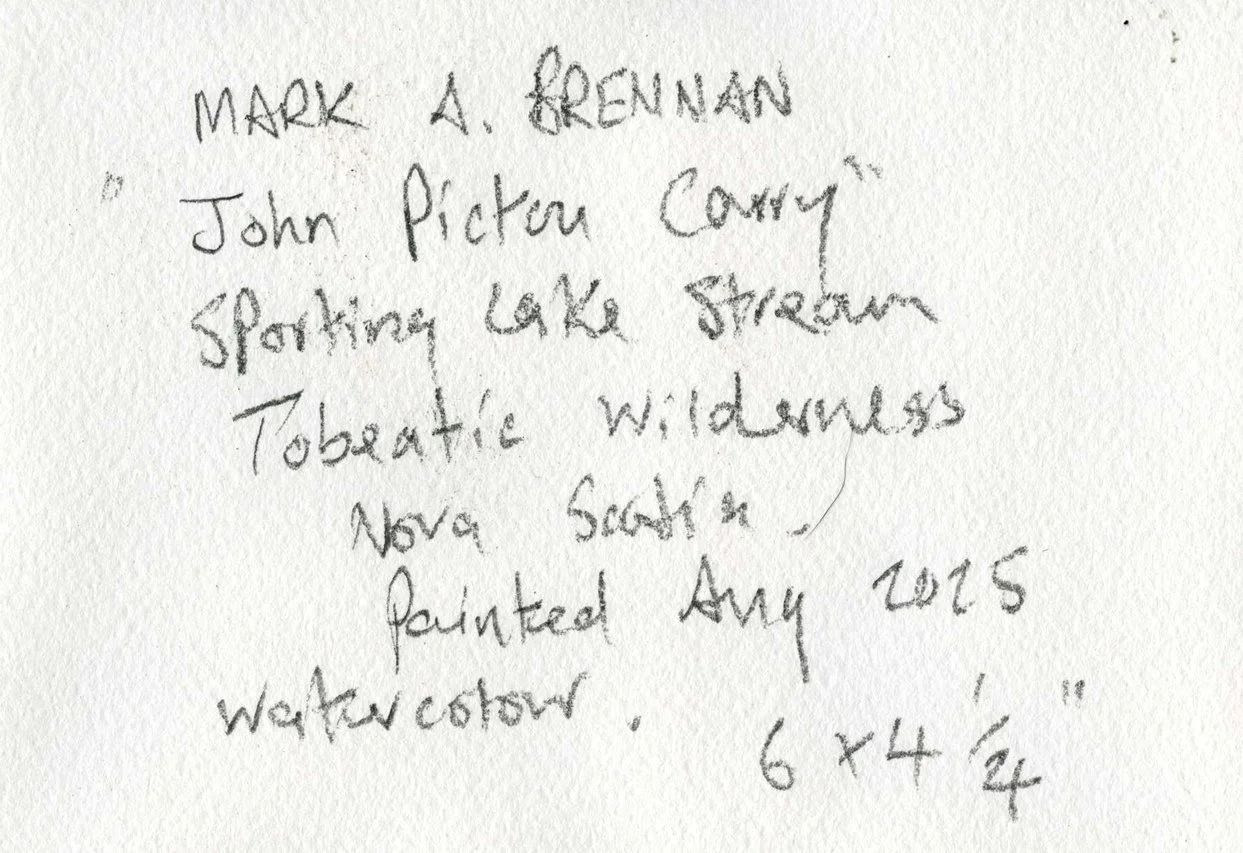 MARK A. BRENNAN
"John Pictou Carry"
Sporting Lake Stream
Tobeatic Wilderness
Nova Scotia.
Painted Aug 2025
Watercolour.
6 x 4 1/4"